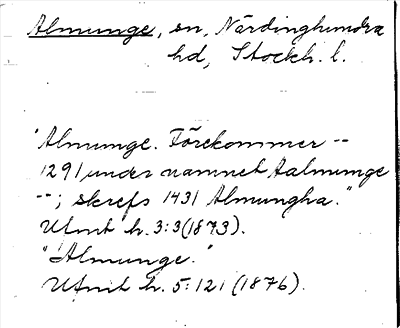 Almunge, sn, Närdinghundra
hd, Stockh. l.
"Almunge. Förekommer --
1291 under namnet Aalmunge
--; skrefs 1431 Almungha."
Ufmt h. 3:3 (1873).
"Almunge."
Ufmt h. 5:121 (1876).